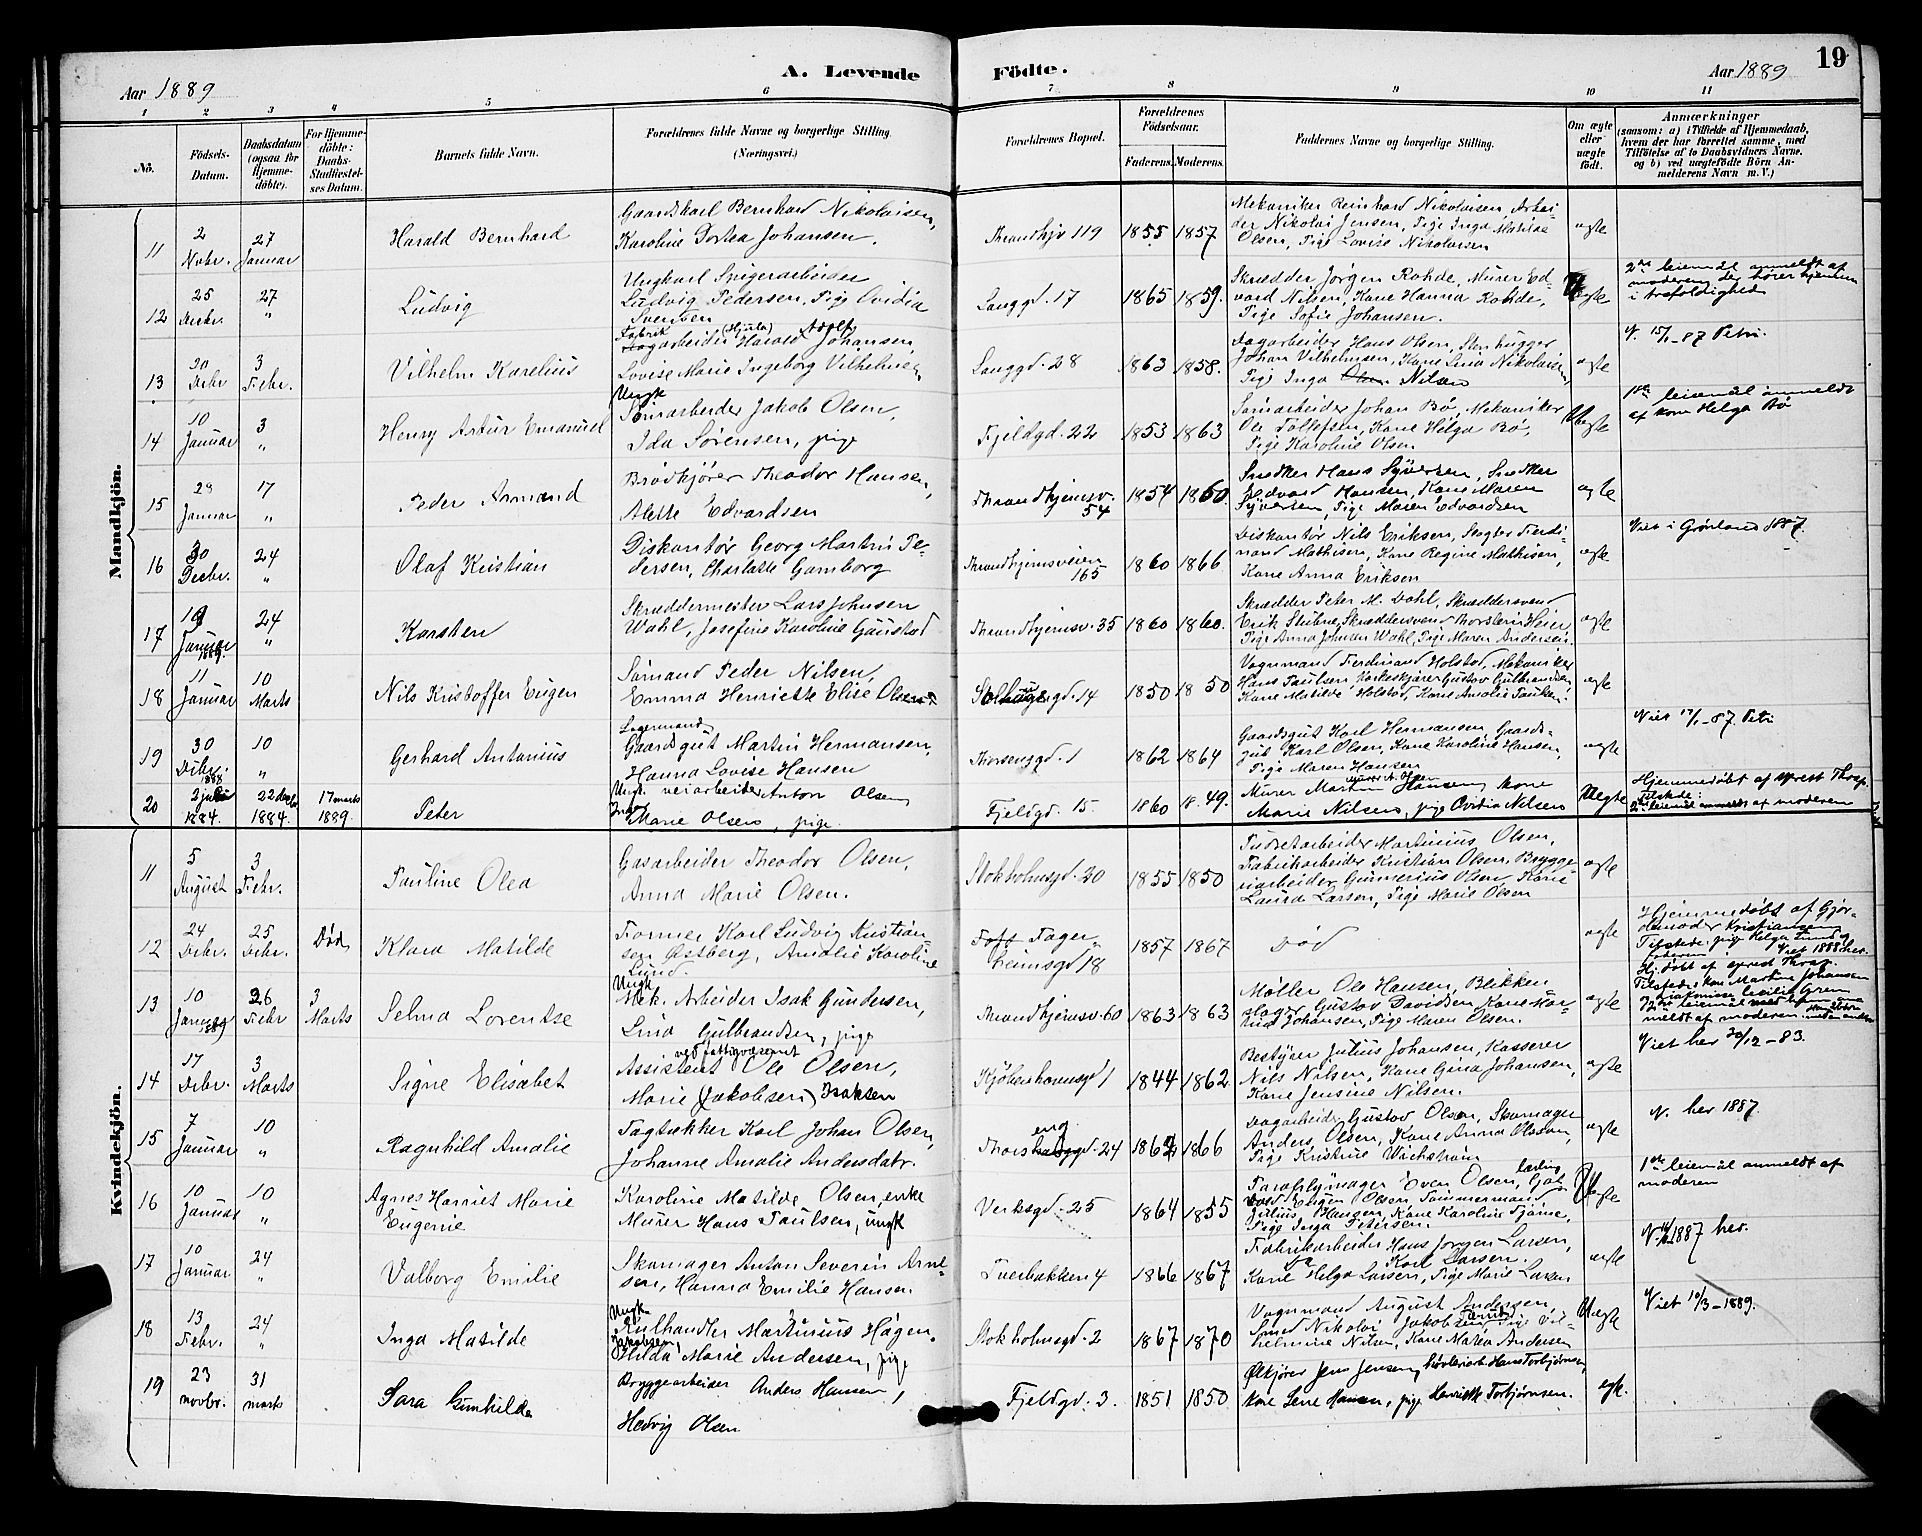 19
Aar 1889
A. Levende Födte.
Aar 1889
1 2 3 4 5 6 7 8 9 10 11
No.
Födsels-Datum.
Daabsdatum (ogsaa for Hjemmedöbte).
For Hjemmedöbte: Daabs-Stadfæstelses Datum.
Barnets fulde Navn.
Forældrenes fulde Navne og borgerlige Stilling. (Næringsvei.)
Forældrenes Bopæl.
Forældrenes Födselsaar.
Faderens. Moderens.
Faddernes Navne og borgerlige Stilling.
Om ægte eller uægte födt.
Anmærkninger
(saasom: a) i Tilfælde af Hjemmedaab, hvem der har forrettet samme, med Tilföielse af to Daabsvidners Navne, og b) ved uægtefödte Börn Anmelderens Navn m. V.)
Mandkjön.
11 2 Nobr. 27 Januar Harald Bernhard
Gaardskarl Bernhard Nikolaisen,
Karoline Dortea Johansen.
Thrandhjv 119 1855 1857
Mekaniker Reinhard Nikolaisen, Arbei-
der Nikolai Jensen, Pige Inga Matilde
Olsen, Pige Lovise Nikolaisen
ægte
12 25 Decbr. 27 " Ludvig
Ungkarl Spigerarbeider
Ludvig Pedersen, Pige Ovidia
Svensen
Langgd. 17 1865 1859.
Skrædder Jörgen Rohde, Murer Ed-
vard Nilsen, Kone Hanna Rohde,
Pige Sofie Johansen.
Uægte
2det leiermål anmeldt af
moderen, der hører hjemme
i trefoldighed
13 30 Decbr 3 Febr. Vilhelm Karelius
Fabrik (Hjula) Adolf
Dagarbeider Harald Johansen
Lovise Marie Ingeborg Vilhelmsen
Langgd. 28 1863 1858.
Dagarbeider Hans Olsen, Stenhugger
Johan Vilhelmsen, Kone Lina Nikolaisen,
Pige Inga Olsen Nilsen
ægte
V. 15/1 - 87 Petri.
14 10 Januar 3 " Henry Artur Emanuel
Ungk
Sömarbeider Jakob Olsen,
Ida Sørensen, pige
Fjeldgd. 22 1853 1863
Sömarbeider Johan Bö, Mekaniker
Ole Tollefsen, Kone Helga Bö,
Pige Karoline Olsen
Uægte
1ste leiermål anmeldt
af kone Helga Bö
15 28 Januar 17 " Peder Armand
Brödkjörer Theodor Hansen,
Alette Edvardsen
Thrandhjemsv. 54 1854 1860.
Snedker Hans Syversen, Snedker
Edvard Hansen, Kone Maren
Syversen, Pige Maren Edvardsen
ægte
16 30 Decbr. 24 " Olaf Kristian
Diskantör Georg Martin Pe-
dersen, Charlotte Gamborg
Thrandhjemsveien 165 1860 1866
Diskantör Nils Eriksen, Slagter Ferdi-
nand Mathisen, Kone Regine Mathisen,
Kone Anna Eriksen
ægte
Viet i Grönland 1887.
17 Januar 1889. 24 " Karsten
Skræddermester Lars Johnsen
Wahl, Josefine Karoline Gaustad
Thrandhjemsv. 35 1860 1860.
Skrædder Peter M. Dahl, Skræddersvend
Erik Stubne, Skræddersvend Thorstein Heier
Pige Anna Johnsen Wahl, Pige Maren Andersen.
ægte
18 11 Januar 10 Marts Nils Kristoffer Eugen
Sömand Peder Nilsen,
Emma Henriette Elise Olsen
gd. 14 1850 1850
Vognmand Ferdinand Holstad, Mekaniker
Hans Paulsen, Gustav Gulbrandsen,
Kone Matilde Holstad, Kone Amalie Paulsen.
ægte
19 30 Decbr. 1888 10 " Gerhard Antonius
Lagermand
Gaardsgut Martin Hermansen,
Hanna Lovise Hansen
Korsengd. 1 1862 1864
Gaardsgut Karl Hermansen Gaards-
gut Karl Olsen, Kone Karoline Hansen,
Pige Maren Hansen
ægte
Viet 17/1 - 87. Petri
20 2 juli 1884. 22 decbr 1884. 17 marts 1889. Peter
Ungk. veiarbeider Anton Olsen
Marie Olsen, pige.
Fjeldgd. 15 1860 18.49.
Murer Martin Hansen, kone
Marie Nilsen, pige Ovidia Nilsen
Uægte
Hjemmedöbt af prest Thrap.
Tilstede:
2det leiermål anmeldt af moderen
Kvindekjön.
11 5 August 3 Febr. Pauline Olea
Gasarbeider Theodor Olsen,
Anna Marie Olsen.
Stokholmsgd. 20 1855 1850
Martinius Olsen,
Fabrikarbeider Kristian Olsen, Brygge-
riarbeider Gunerius Olsen, Kone
Laura Larsen, Pige Marie Olsen
ægte
12 24 Decbr. 25 Decbr. Död Klara Matilde
Former Karl Ludvig Kristian-
sen Östberg, Amalie Karoline
Lund.
Toft Fager
heimsgd 18 1857 1867
Död
ægte
Hjemmedöbt af Gjor-
demoder Kristiansen
Tilstede: pige Helga Lund og
faderen. Viet 1888 her.
13 10 Januar 1889 26 Febr 3 Marts Selma Lorentse
Ungk
Mek. Arbeider Isak Gundersen,
Lina Gulbrandsen, pige
Thrandhjemsv. 60 1863 1863
Möller Ole Hansen, Blikken-
slager Gustav Davidsen, Kone Mar-
tine Johansen, Pige Maren Olsen.
ægte
Hj. döbt af prest Thrap.
Tilstede: Kone Martine Johansen
Diakonisse Cecilie Grem
meldt af moderen.
14 17 Decbr. 3 Marts Signe Elisabet
ved fattigvæsenet
Assistent Ole Olsen,
Marie (Jakobsen) Isaksen
Kjöbenhavnsgd 1 1844 1862
Bestyrer Julius Johansen, Kasserer
Nils Nilsen, Kone Gina Johansen,
Kone Jensine Nilsen.
ægte
Viet her 30/12 - 83.
15 7 Januar 10 " Ragnhild Amalie
Tagtækker Karl Johan Olsen,
Johanne Amalie Andersdatr.
eng
Thorshauggd. 24 1862 1866
Dagarbeider Gustav Olsen, Skomager
Anders Olsen, Kone Anna Olsen,
Pige Kristine Wichstrøm
ægte
V. her 1887.
16 10 Januar 10 " Agnes Harriet Marie
Eugenie
Karoline Matilde Olsen, enke
Murer Hans Paulsen, ungk
Verksgd. 25 1864 1855
Paraplymager Even Olsen,
Eugen Olsen, Tömmermand
Julius Hansen, Kone Karoline Tjörne,
Pige Inga Petersen.
Uægte
1ste leiermål anmeldt af
moderen
17 10 Januar 24 " Valborg Emilie
Skomager Anton Severin Arne-
sen, Hanna Emilie Hansen
Tverbakken 4 1866 1867
Fabrikarbeider Hans Jörgen Larsen,
Do Karl Larsen.
Kone Helga Larsen, Pige Marie Larsen
ægte
1887 her.
18 13 Febr. 24 " Inga Matilde
Ungk.
Kulhandler Martinius Hagen.
Jakobsen
Hilda Marie Andersen, pige
Stokholmsgd. 2 1867 1870
Vognmand August Andersen,
Smed Nikolai Jakobsen, Pige Vil-
helmine Nilsen, Kone Matea Andersen
Uægte
Viet 10/3 - 1889.
19 23 novbr. 31 marts Sara Gunhilda
Bryggearbeider Anders Hansen,
Hedvig Olsen
Fjeldgd. 3. 1851 1850
Ølkjører Jens Jensen, høvleriarb. Hans Torbjørnsen,
kone Lene Hansen, pige Henriette Torbjørnsen.
egt.